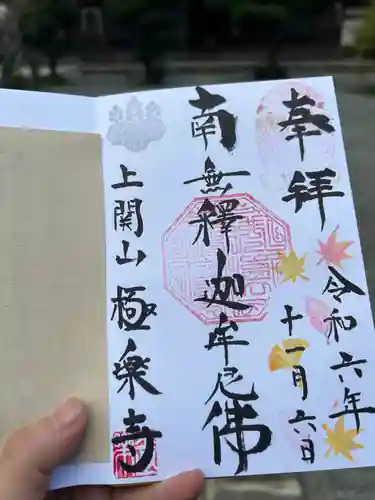 奉拝
令和六年
十一月六日
南無釋迦牟尼佛
上関山極樂寺